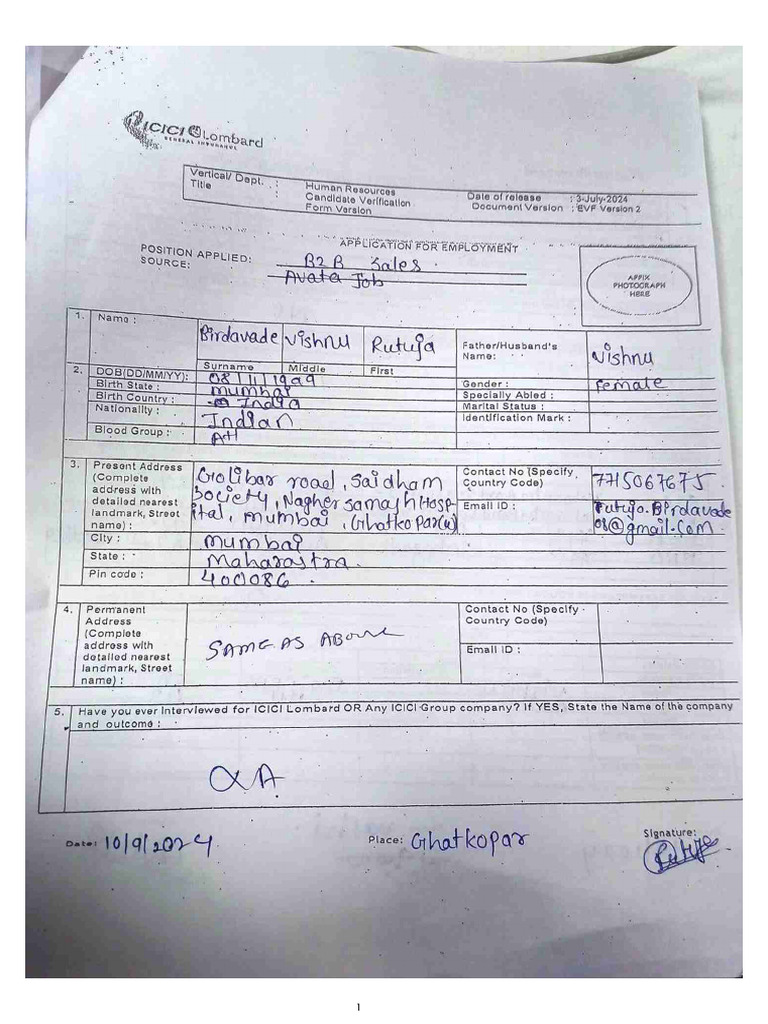 ICICI Lombard
GENERAL INSURANCE
Vertical/ Dept. : Human Resources
Title : Candidate Verification
Form Version
Date of release : 3-July-2024
Document Version : EVF Version 2
APPLICATION FOR EMPLOYMENT
POSITION APPLIED: B2B Sales
SOURCE: Avata Job
AFFIX
PHOTOGRAPH
HERE
1. Name : Birdavade Vishnu Rutuja
Surname Middle First
Father/Husband's
Name: Vishnu
2. DOB(DD/MM/YY): 08/11/1999
Birth State : Mumbai
Birth Country : India
Nationality : Indian
Blood Group : A+
Gender : Female
Specially Abled :
Marital Status :
Identification Mark :
3. Present Address
(Complete
address with
detailed nearest
landmark, Street
name) :
Golibar road, Saidham
Society, Nagher Samajh Hosp-
ital, Mumbai, Ghatkopar(w)
Contact No (Specify
Country Code) 7715067675
Email ID : Rutuja.Birdavade
08@gmail.com
City : Mumbai
State : Maharastra
Pin code : 400086
4. Permanent
Address
(Complete
address with
detailed nearest
landmark, Street
name) :
SAME AS ABOVE
Contact No (Specify
Country Code)
Email ID :
5. Have you ever Interviewed for ICICI Lombard OR Any ICICI Group company? If YES, State the Name of the company
and outcome :
Date: 10/9/2024
Place: Ghatkopar
Signature:
Rutuja
1